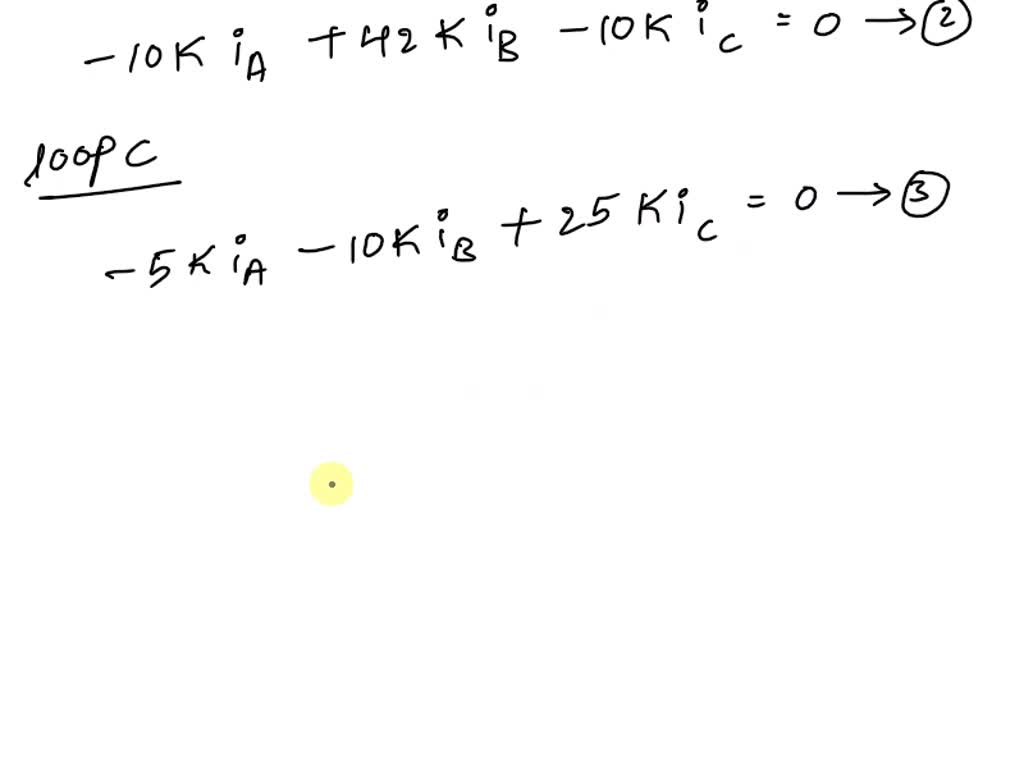 -10K iA + 42K iB - 10K iC = 0 → ②
loop C
-5K iA - 10K iB + 25K iC = 0 → ③